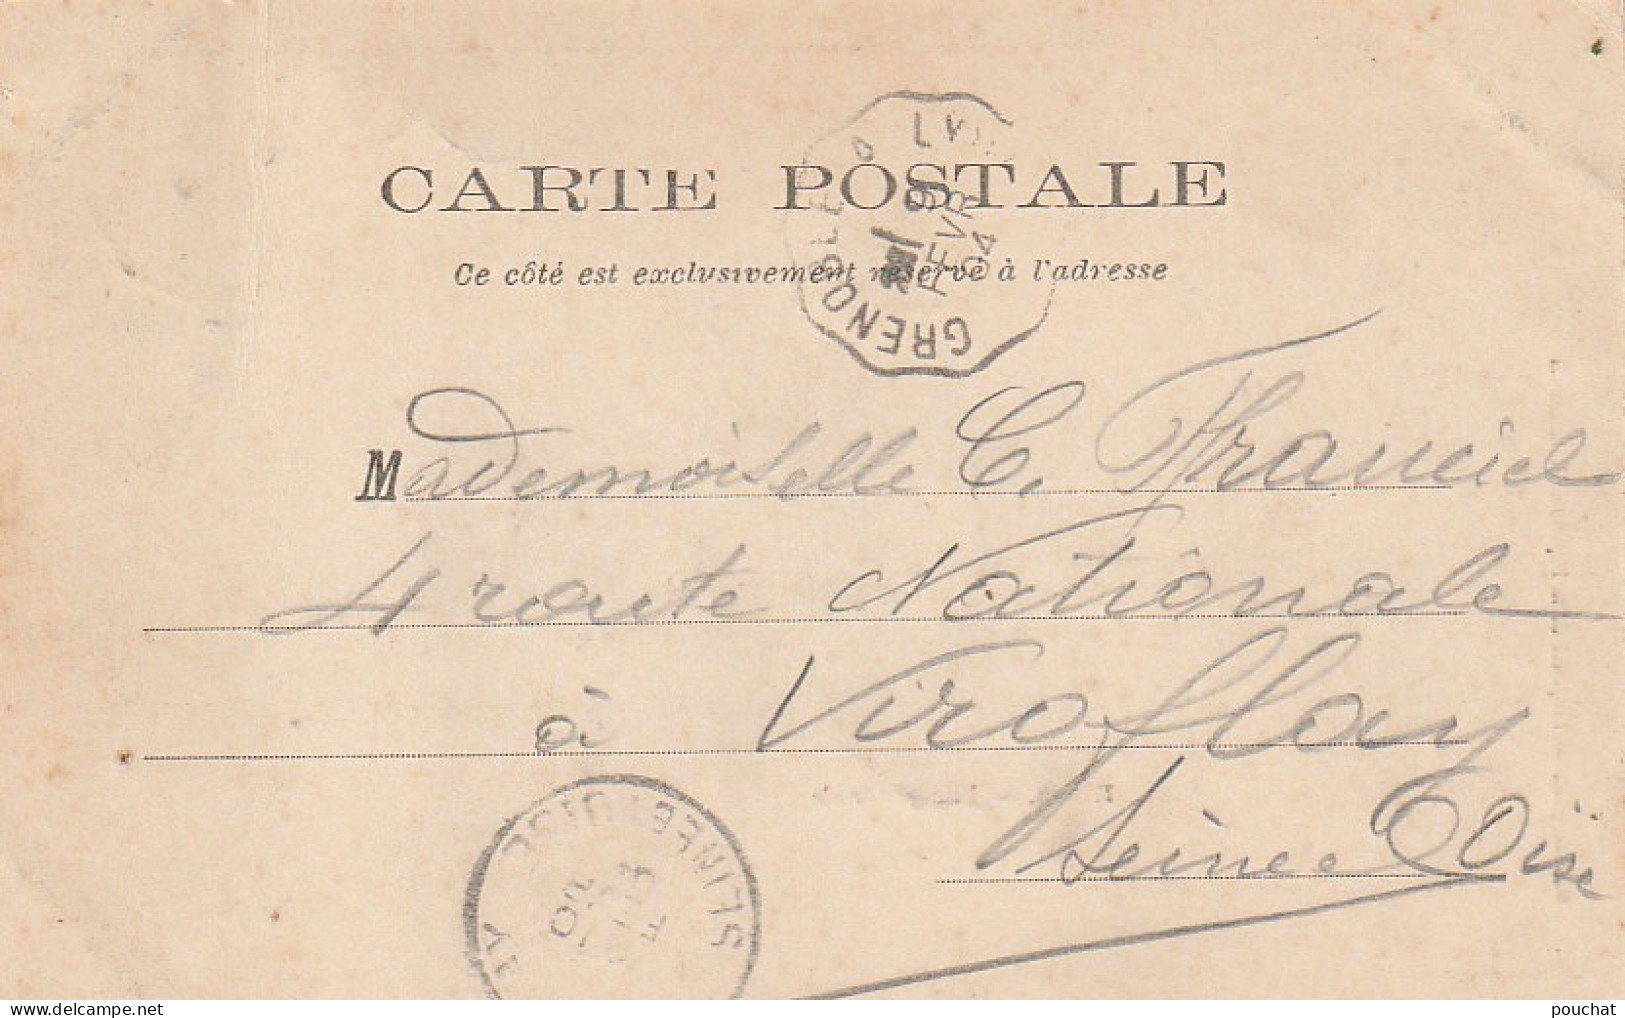 CARTE POSTALE
Ce côté est exclusivement réservé à l'adresse
GRENOBLE À LYON
9
FEVR
04
Mademoiselle C. Franciel
4 route Nationale
à Viroflay
Seine e Oise
SEINE ET OISE
AY
pouchat